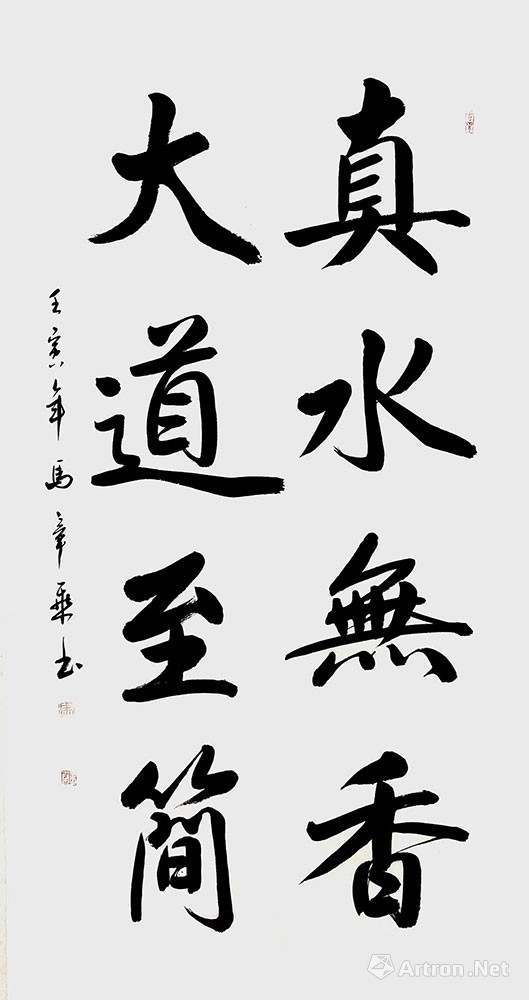 真水無香
大道至簡
壬寅年馬章乘书
Artron.Net